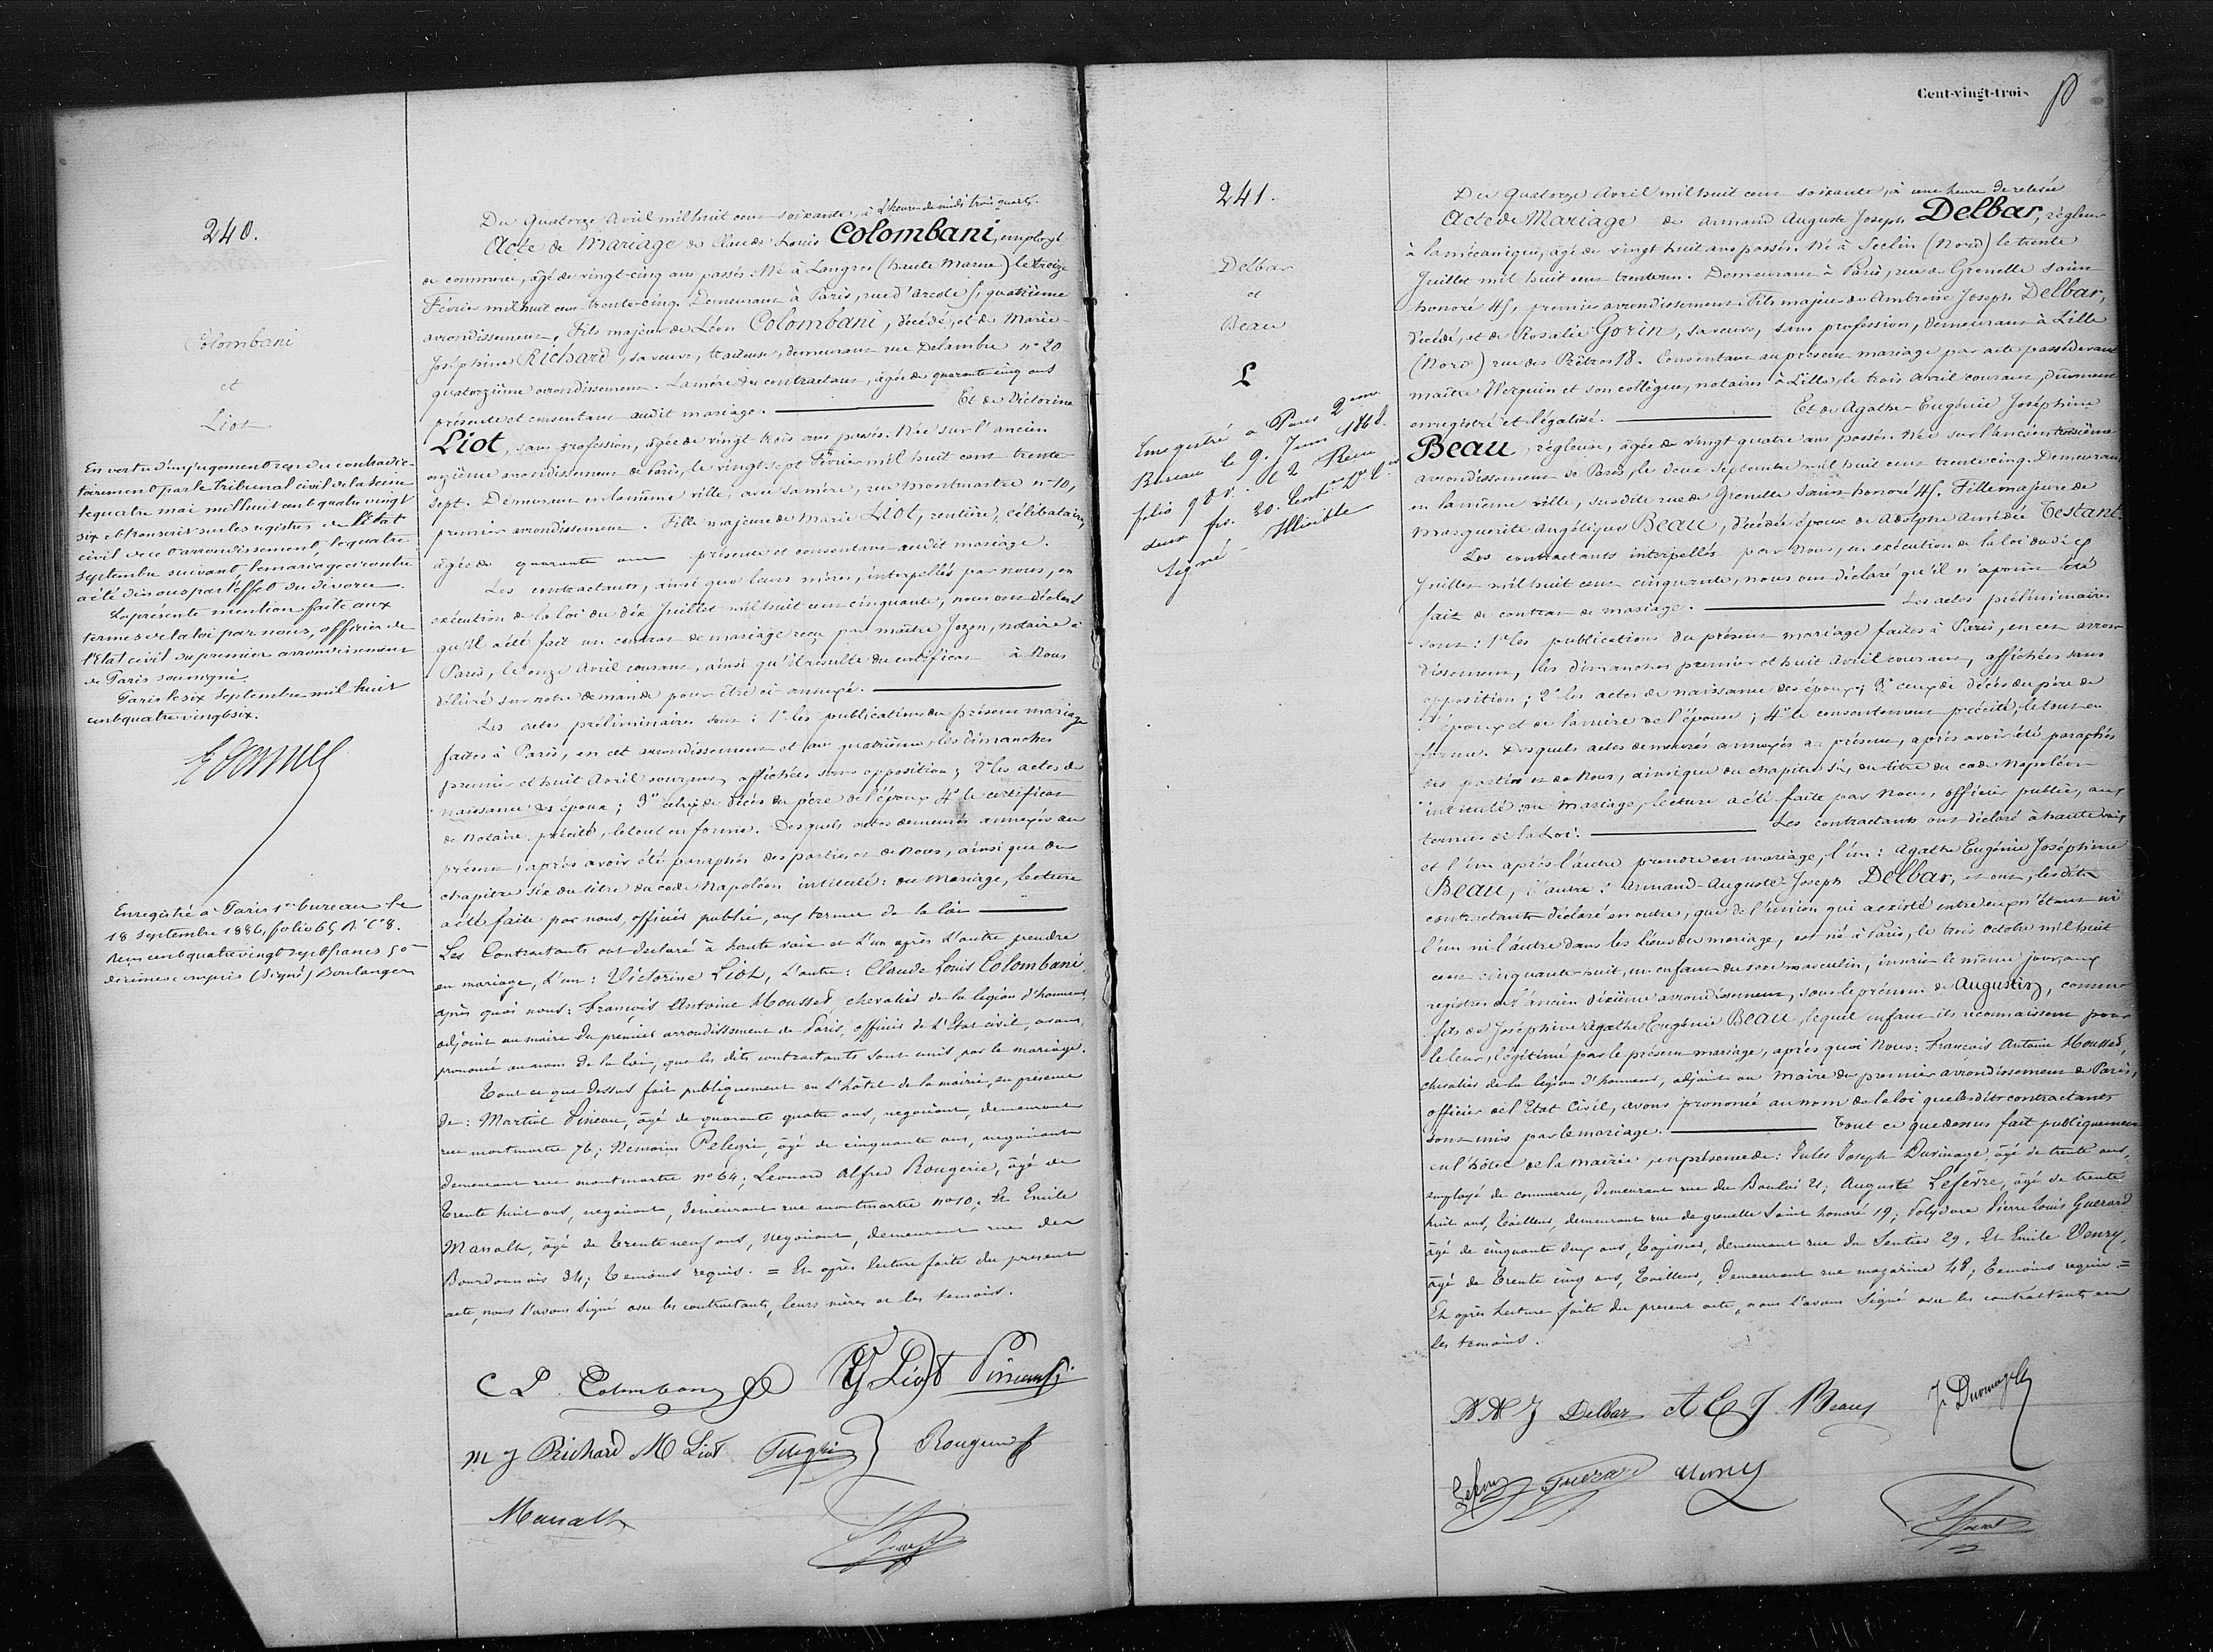 240.
Colombani
et
Liot
En vertu d'un jugement rendu contradic-
toirement par le Tribunal civil de la Seine
le quatre mai mil huit cent quatre vingt
six et transcrit sur les registres de l'Etat
civil de cet arrondissement, le quatre
septembre suivant le mariage ci contre
a été dissous par l'effet du divorce.
La présente mention faite aux
termes de la loi par nous, officier de
l'Etat civil du premier arrondissement
de Paris soussigné.
Paris le six septembre mil huit
cent quatre vingt six.
Enregistré à Paris 1er bureau le
18 septembre 1886, folio 65 R. Ce 8.
Reçu cent quatre vingt sept francs 50
décimes compris (Signé) Boulanger
Du quatorze avril mil huit cent soixante, à l'heure de midi trois quarts.
Acte de Mariage de Claude Louis Colombani, employé
de commerce, âgé de vingt-cinq ans passés. Né à Langres (haute Marne) le treize
Février mil huit cent trente-cinq. Demeurant à Paris, rue d'arcole 5, quatrième
arrondissement, Fils majeur de Léon Colombani, décédé, et de Marie-
Joséphine Richard, sa veuve, traiteuse, demeurant rue Delambre n° 20
quatorzième arrondissement. La mère du contractant, âgée de quarante cinq ans
présente et consentant audit mariage. Et de Victorine
Liot, sans profession, âgée de vingt-trois ans passés. Née sur l'ancien
onzième arrondissement de Paris, le vingt sept Février mil huit cent trente
sept. Demeurant en la même ville, avec sa mère, rue Montmartre n° 10,
premier arrondissement. Fille majeure de Marie Liot, rentière, célibataire,
âgée de quarante ans présente et consentant audit mariage.
Les contractants, ainsi que leurs mères, interpellés par nous, en
exécution de la loi du dix Juillet mil huit cent cinquante, nous ont déclaré
qu'il a été fait un contrat de mariage reçu par maître Jozon, notaire à
Paris, le onze Avril courant, ainsi qu'il résulte du certificat à Nous
délivré sur notre demande pour être ci annexé.
Les actes préliminaires sont : 1° les publications du présent mariage
faites à Paris, en cet arrondissement et au quatrième, les dimanches
premier et huit Avril courant, affichées sans opposition ; 2° les actes de
naissance des époux ; 3° celui de décès du père de l'époux 4° le certificat
de Notaire précité, le tout en forme. Desquels actes demeurés annexés au
présent, après avoir été paraphés des parties et de Nous, ainsi que du
chapitre six du titre du code Napoléon intitulé : du Mariage, lecture
a été faite par nous, officier public, aux termes de la loi
Les Contractants ont declaré à haute voix et l'un après l'autre prendre
en mariage, l'un : Victorine Liot, l'autre : Claude Louis Colombani,
après quoi nous : François Antoine Housset, chevalier de la légion d'honneur,
adjoint au maire du premier arrondissement de Paris, officier de l'Etat civil, avons
prononcé au nom de la loi, que les dits contractants sont unis par le mariage.
Tout ce que dessus fait publiquement en l'hôtel de la mairie, en présence
de : Martial Pineau, âgé de quarante quatre ans, negociant, demeurant
rue montmartre 76 ; Nemorin Pelegri, âgé de cinquante ans, negociant
demeurant rue montmartre n° 64 ; Leonard Alfred Rougerie, âgé de
Trente huit ans, negociant, demeurant rue montmartre n° 10 ; Et Emile
Manalt, âgé de Trente neuf ans, negociant, demeurant rue des
Bourdonnais 34 ; Temoins requis. = Et après lecture faite du present
acte, nous l'avons signé avec les contractants, leurs mères et les temoins.
C L Colombani V Liot Pineau
M J Richard M Liot Pelegri Rougerie
Manalt
Cent-vingt-trois
241.
Delbar
et
Beau
L
Enregistré à Paris 2eme
Bureau le 9. Juin 1860.
folio 98 v. C 2 Recu
deux frs. 20. Cent.
Signé - Illisible
Du Quatorze Avril mil huit cent soixante, à une heure de relevée
Acte de Mariage de Armand Auguste Joseph Delbar, régleur
à la mécanique, âgé de vingt huit ans passés. Né à Seclin (Nord) le trente
Juillet mil huit cent trente un. Demeurant à Paris, rue de Grenelle saint
honoré 45, premier arrondissement. Fils majeur de Ambroise Joseph Delbar,
décédé, et de Rosalie Gorin, sa veuve, sans profession, demeurant à Lille
(Nord) rue des Prêtres 18. Consentant au présent mariage par acte passé devant
maître Werquin et son collègue, notaires à Lille, le trois Avril courant, dûment
enregistré et légalisé. Et de Agathe-Eugénie Joséphine
Beau, régleuse, âgée de vingt quatre ans passés. Née sur l'ancien troisième
arrondissement de Paris, le deux Septembre mil huit cent trente cinq. Demeurant
en la même ville, susdite rue de Grenelle Saint-honoré 45. Fille majeure de
Marguerite Angélique Beau, décédée épouse de Adolphe Amédée Testant.
Les contractants interpellés par Nous, en exécution de la loi du dix
Juillet mil huit cent cinquante, nous ont déclaré qu'il n'a point été
fait de contrat de mariage. Les actes préliminaires
sont : 1° les publications du présent mariage faites à Paris, en cet arron-
dissement, les dimanches premier et huit Avril courant, affichées sans
opposition ; 2° les actes de naissance des époux ; 3° ceux de décès du père de
l'époux et de la mère de l'épouse ; 4° le consentement précité, le tout en
forme. Desquels actes demeurés annexés au présent, après avoir été paraphés
des parties et de Nous, ainsi que du chapitre six, du titre du code Napoléon
intitulé du Mariage, lecture a été faite par Nous, officier public, aux
termes de la Loi. Les contractants ont déclaré à haute voix
et l'un après l'autre prendre en mariage, l'un : Agathe Eugénie Joséphine
Beau, l'autre : Armand-Auguste-Joseph Delbar, et ont, lesdits
contractants déclaré en outre, que de l'union qui a existé entre eux n'étant ni
l'un ni l'autre dans les liens du mariage, est né à Paris, le trois octobre mil huit
cent cinquante-huit, un enfant du sexe masculin, inscrit le même jour, aux
registres de l'ancien dixième arrondissement, sous le prénom de Augustin, comme
fils de Joséphine Agathe Eugénie Beau, lequel enfant ils reconnaissent pour
le leur, légitimé par le présent mariage, après quoi Nous : François Antoine Housset,
chevalier de la légion d'honneur, adjoint au Maire du premier arrondissement de Paris,
officier de l'Etat Civil, avons prononcé au nom de la loi que lesdits contractants
sont unis par le mariage. Tout ce que dessus fait publiquement
en l'hôtel de la Mairie, en présence de : Jules Joseph Durinage, âgé de trente ans,
employé de commerce, demeurant rue du Bouloi 21 ; Auguste Lefèvre, âgé de trente
huit ans, tailleur, demeurant rue de grenelle Saint honoré 19 ; Polydore Pierre Louis Guerard
âgé de cinquante deux ans, Tapissier, demeurant rue du Sentier 29, Et Emile Venry,
âgé de Trente cinq ans, Tailleur, demeurant rue mazarine 48 ; Temoins requis. =
Et après lecture faite du present acte, nous l'avons signé avec les contractants et
les temoins.
A A J Delbar A E J Beau J. Durinage
Lefèvre Guerard Venry